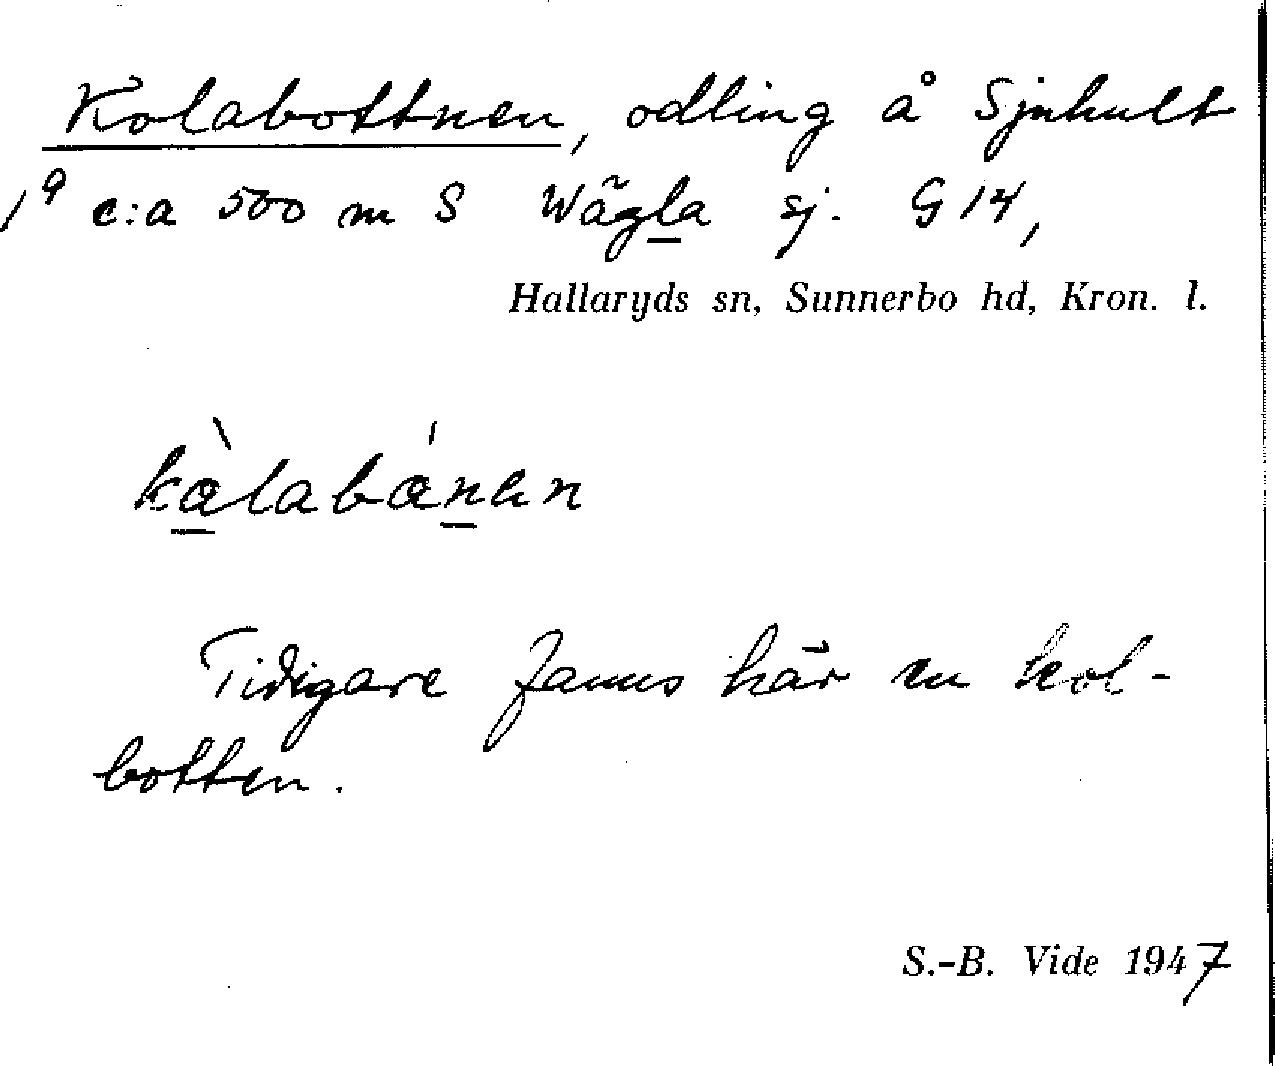 Kolabottnen, odling å Sjnhult
1⁹ c:a 500 m S Wägla sj. G 14,
Hallaryds sn, Sunnerbo hd, Kron. l.
kàlabánen
Tidigare fanns här en kol-
botten.
S.-B. Vide 1947